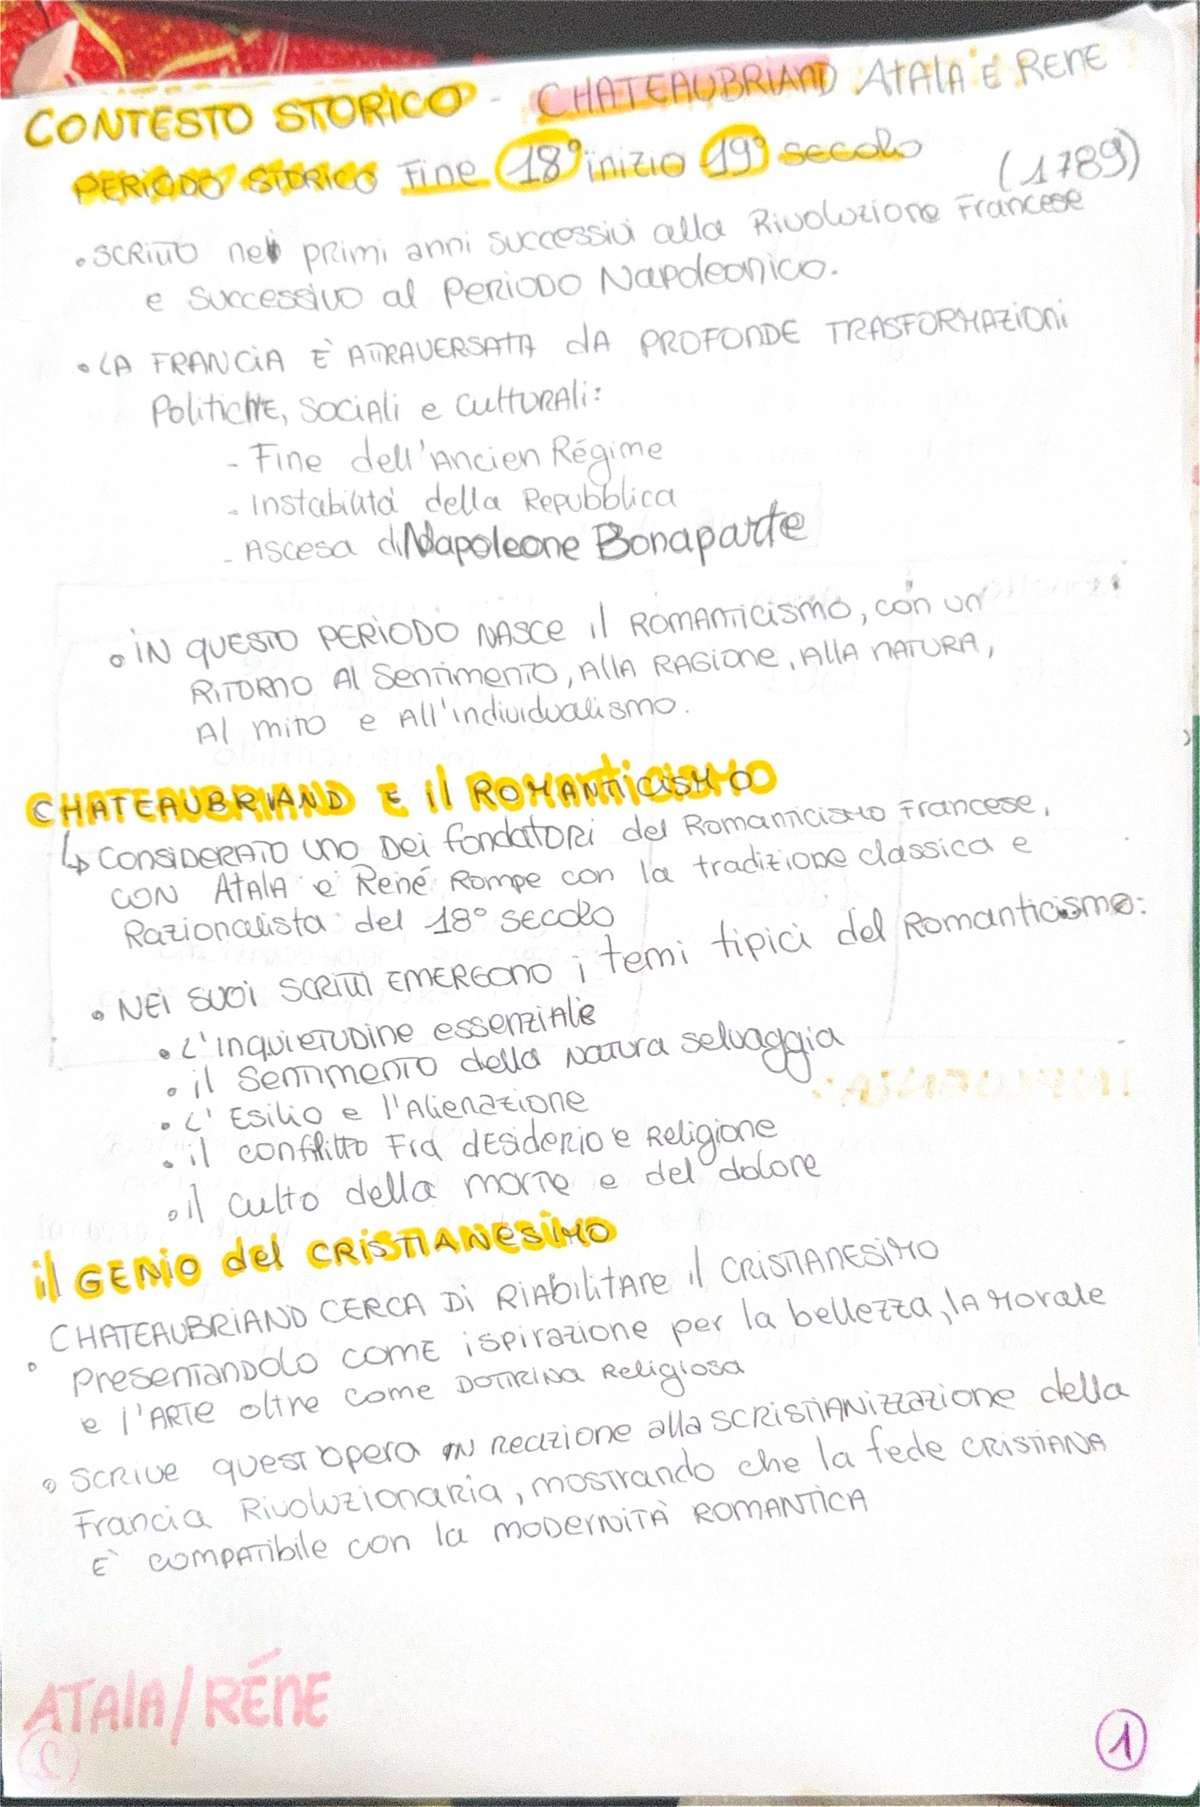 CONTESTO STORICO - CHATEAUBRIAND ATALA E RENE
PERIODO STORICO Fine 18° inizio 19° secolo (1789)
• SCRITTO nei primi anni successivi alla Rivoluzione Francese
e successivo al PERIODO Napoleonico.
• LA FRANCIA È ATTRAVERSATA dA PROFONDE TRASFORMAZIONI
Politiche, sociali e culturali:
- Fine dell'Ancien Régime
- Instabilità della Repubblica
- Ascesa di Napoleone Bonaparte
• IN QUESTO PERIODO NASCE il ROMANTICISMO, con un
RITORNO Al Sentimento, Alla RAGione, Alla nATURA,
Al mito e All'individualismo.
CHATEAUBRIAND E il ROMANTICISMO
↳ CONSIDERATO uno Dei fondatori del Romanticismo Francese,
CON Atala e René Rompe con la tradizione classica e
Razionalista del 18° secolo
• NEI SUOI SCRITTI EMERGONO i temi tipici del Romanticismo:
• L'inquietudine essenziale
• il Sentimento della Natura selvaggia
• L'Esilio e l'Alienazione
• il conflitto Fra desiderio e Religione
• il culto della morte e del dolore
il GENIO del CRISTIANESIMO
• CHATEAUBRIAND CERCA DI RIABILITARE il CRISTIANESIMO
presentandolo come ispirazione per la bellezza, la morale
e l'ARTE oltre come DOTTRINA Religiosa
• SCRIVE quest'opera IN Reazione alla SCRISTIANIZZAZIONE della
Francia Rivoluzionaria, mostrando che la fede CRISTIANA
È compatibile con la modernità ROMANTICA
ATALA/RÉNE
1